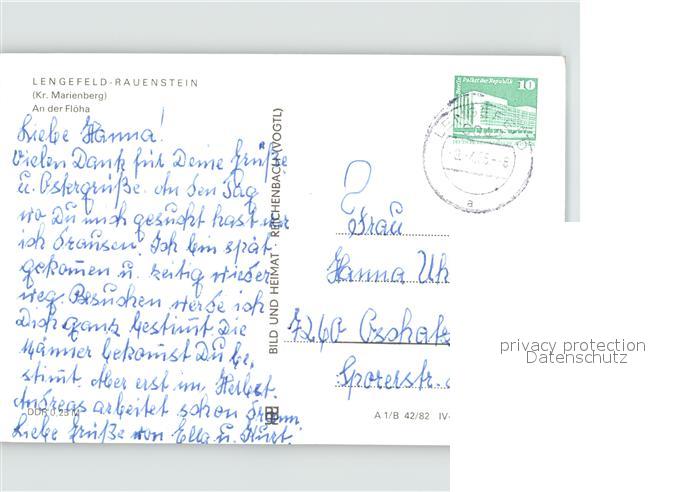 LENGEFELD-RAUENSTEIN
(Kr. Marienberg)
An der Flöha
Liebe Hanna!
Vielen Dank für Deine Grüße
u. Ostergrüße. An den Tag
wo Du mich gesucht hast war
ich draussen. Ich bin spät
gekomen u. zeitig wieder
weg. Besuchen werde ich
Dich ganz bestimt. Die
Männer bekomst Du be,
stimt. Aber erst im Herbst.
Andreas arbeitet schon
Liebe Grüße von Ella u. Kurt.
DDR 0,25 M
BILD UND HEIMAT · REICHENBACH (VOGTL)
Berlin Palast der Republik
10
a
Frau
Hanna Uh
7260 Oschatz
Sporerstr.
A 1/B 42/82 IV-
privacy protection
Datenschutz